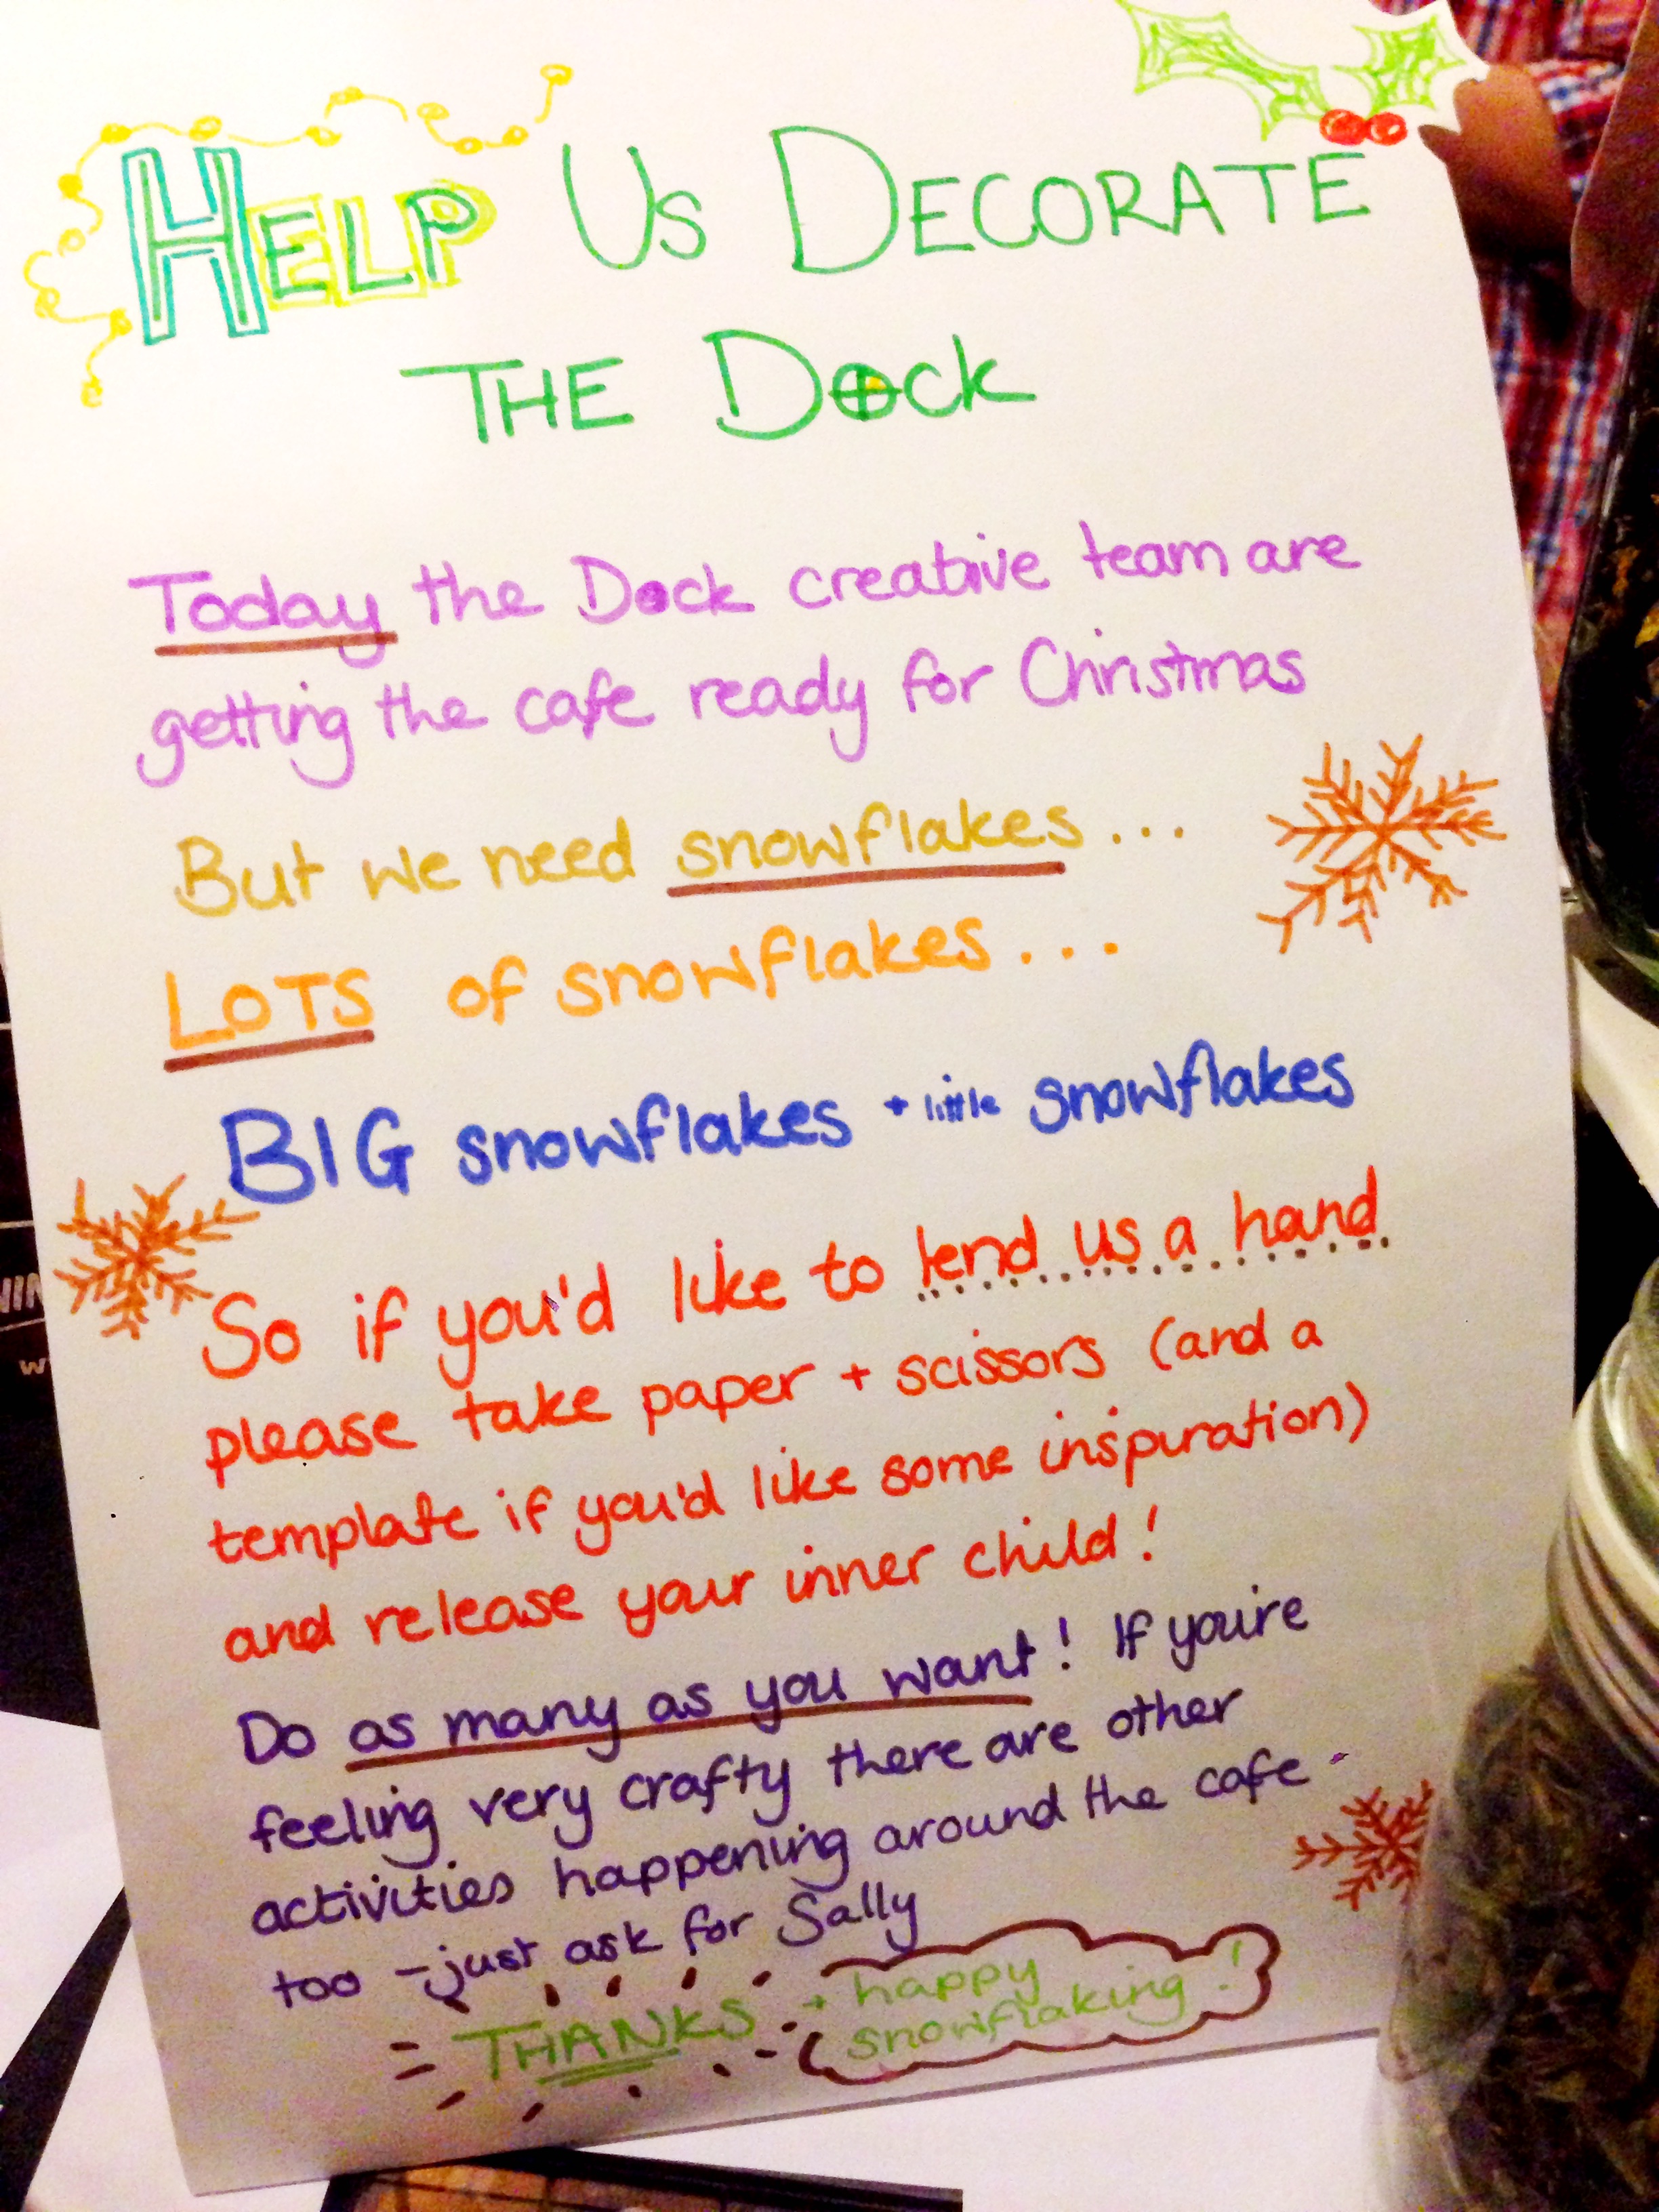 HELP US DECORATE
THE DOCK
Today the Dock creative team are
getting the cafe ready for Christmas
But we need snowflakes...
LOTS of snowflakes...
BIG snowflakes + little snowflakes
So if you'd like to lend us a hand
please take paper + scissors (and a
template if you'd like some inspiration)
and release your inner child!
Do as many as you want! If you're
feeling very crafty there are other
activities happening around the cafe -
too - just ask for Sally
THANKS + happy
snowflaking!